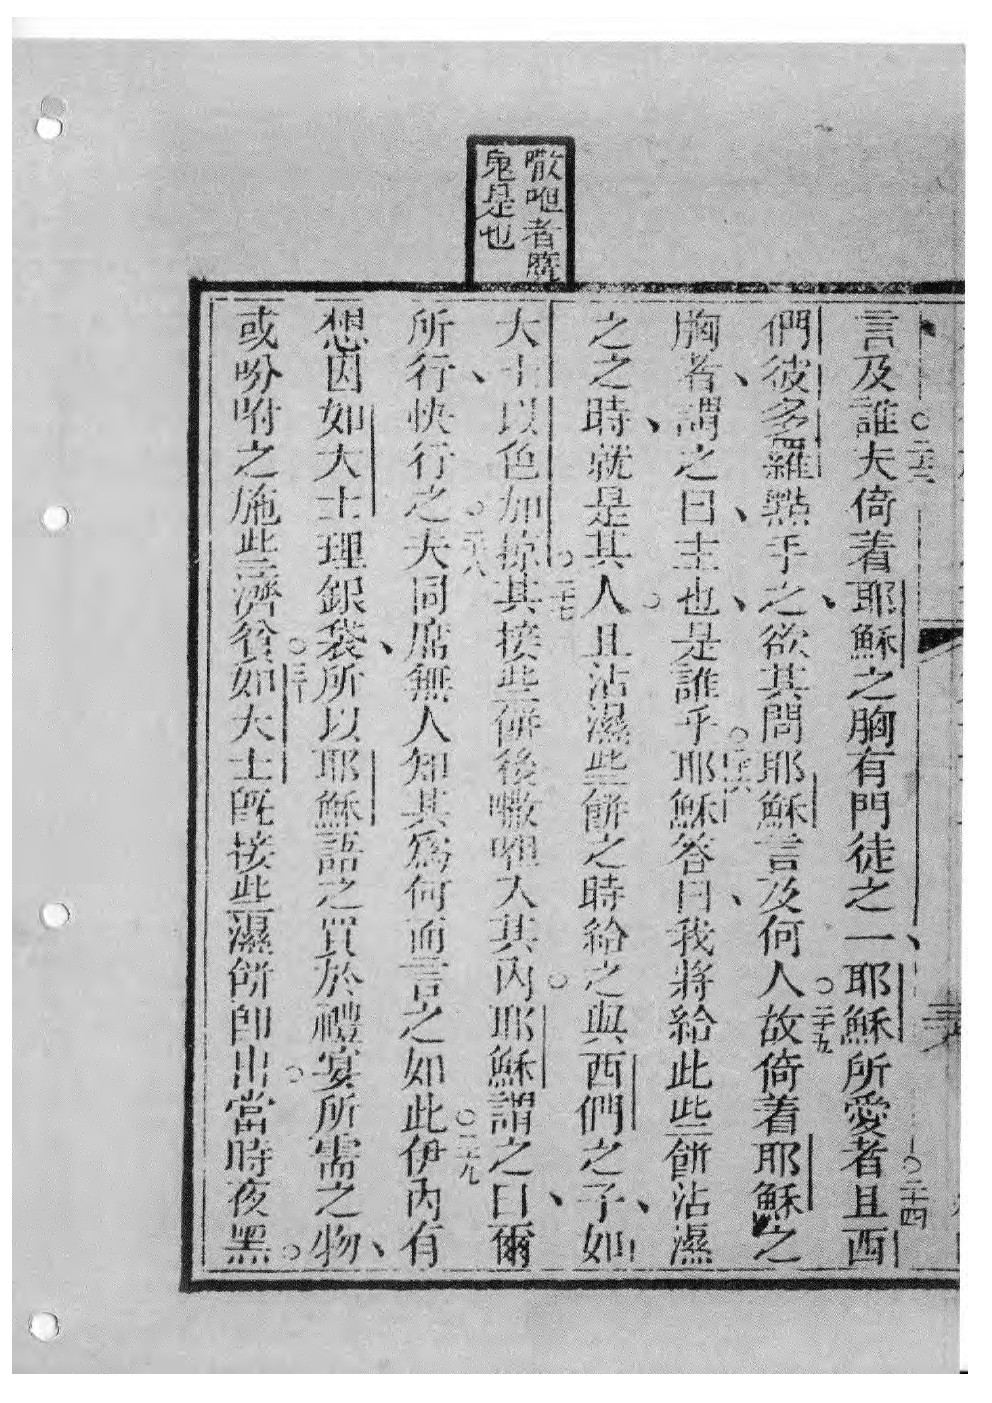 㘚呾者魔
鬼是也
言及誰夫倚着耶穌之胸有門徒之一、耶穌所愛者且西
們彼多羅㸃手之、欲其問耶穌言及何人故倚着耶穌之
胸者、謂之曰、主也、是誰乎耶穌答曰、我將給此些餅沾濕
之之時、就是其人且沾濕些餅之時給之與西們之子、如
大士以色加掠其接些餅後㘚呾入其內耶穌謂之曰、爾
所行、快行之夫同席無人知其為何而言之如此伊內有
想因如大士理銀袋、所以耶穌語之買於禮宴所需之物、
或吩咐之施些濟貧如大士既接些濕餅即出當時夜黑
○二十三
○二十四
○二十五
○二十六
○二十七
○二十八
○二十九
○三十